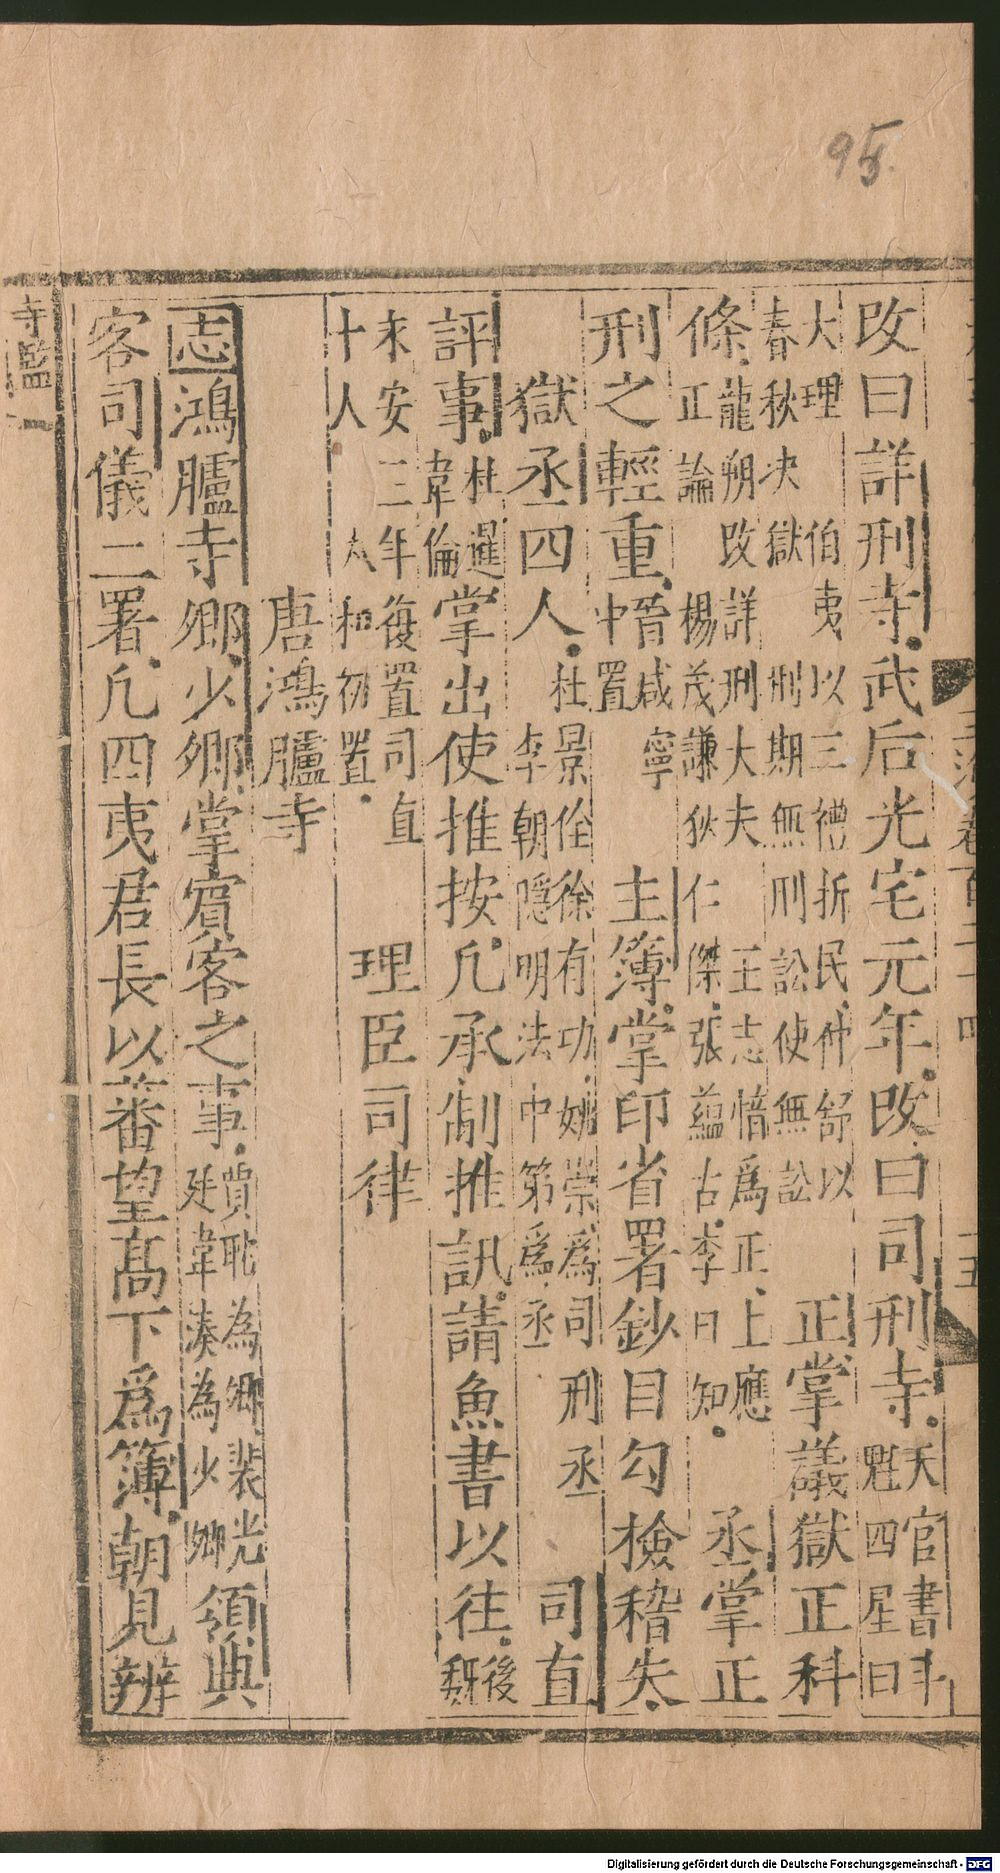 95
改曰詳刑寺武后光宅元年改曰司刑寺天官書斗魁四星曰
大理 伯夷以三禮折民仲舒以春秋决獄 刑期無刑訟使無訟 正掌議獄正科
條龍朔改詳刑大夫 王志愔爲正上應正論 楊茂謙狄仁傑張蘊古李日知 丞掌正
刑之輕重晉咸寧中置 主簿掌印省署鈔目勾檢稽失
獄丞四人杜景佺徐有功姚崇爲司刑丞李朝隱明法中第爲丞 司直
評事杜暹韋倫掌出使推按凡承制推訊請魚書以往後魏
永安二年復置司直十人 太和初置 理臣司律
唐鴻臚寺
志鴻臚寺卿少卿掌賓客之事賈耽為卿裴光延韋湊為少卿領典
客司儀二署凡四夷君長以蕃望高下爲簿朝見辨
寺監一
Digitalisierung gefördert durch die Deutsche Forschungsgemeinschaft - DFG